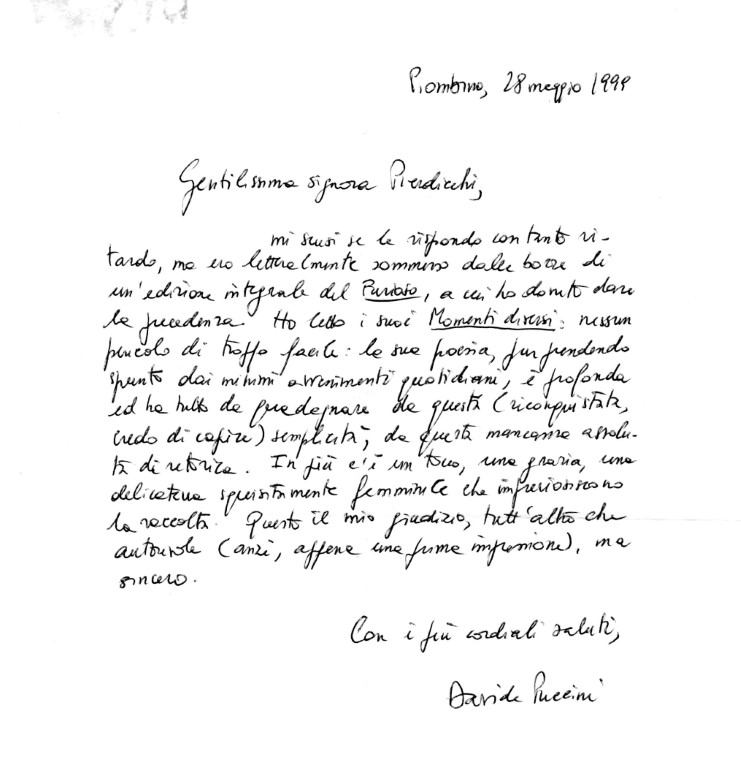 Piombino, 28 maggio 1999
Gentilissima signora Pierdicchi,
mi scusi se le rispondo con tanto ri-
tardo, ma ero letteralmente sommerso dalle bozze di
un'edizione integrale del Furioso, a cui ho dovuto dare
la precedenza. Ho letto i suoi Momenti diversi: nessun
pericolo di troppo facile: la sua poesia, pur prendendo
spunto dai minimi avvenimenti quotidiani, è profonda
ed ha tutto da guadagnare da questa (riconquistata,
credo di capire) semplicità, da questa mancanza assolu-
ta di retorica. In più c'è un tocco, una grazia, una
delicatezza squisitamente femminile che impreziosiscono
la raccolta. Questo il mio giudizio, tutt'altro che
autorevole (anzi, appena una prima impressione), ma
sincero.
Con i più cordiali saluti,
Davide Puccini